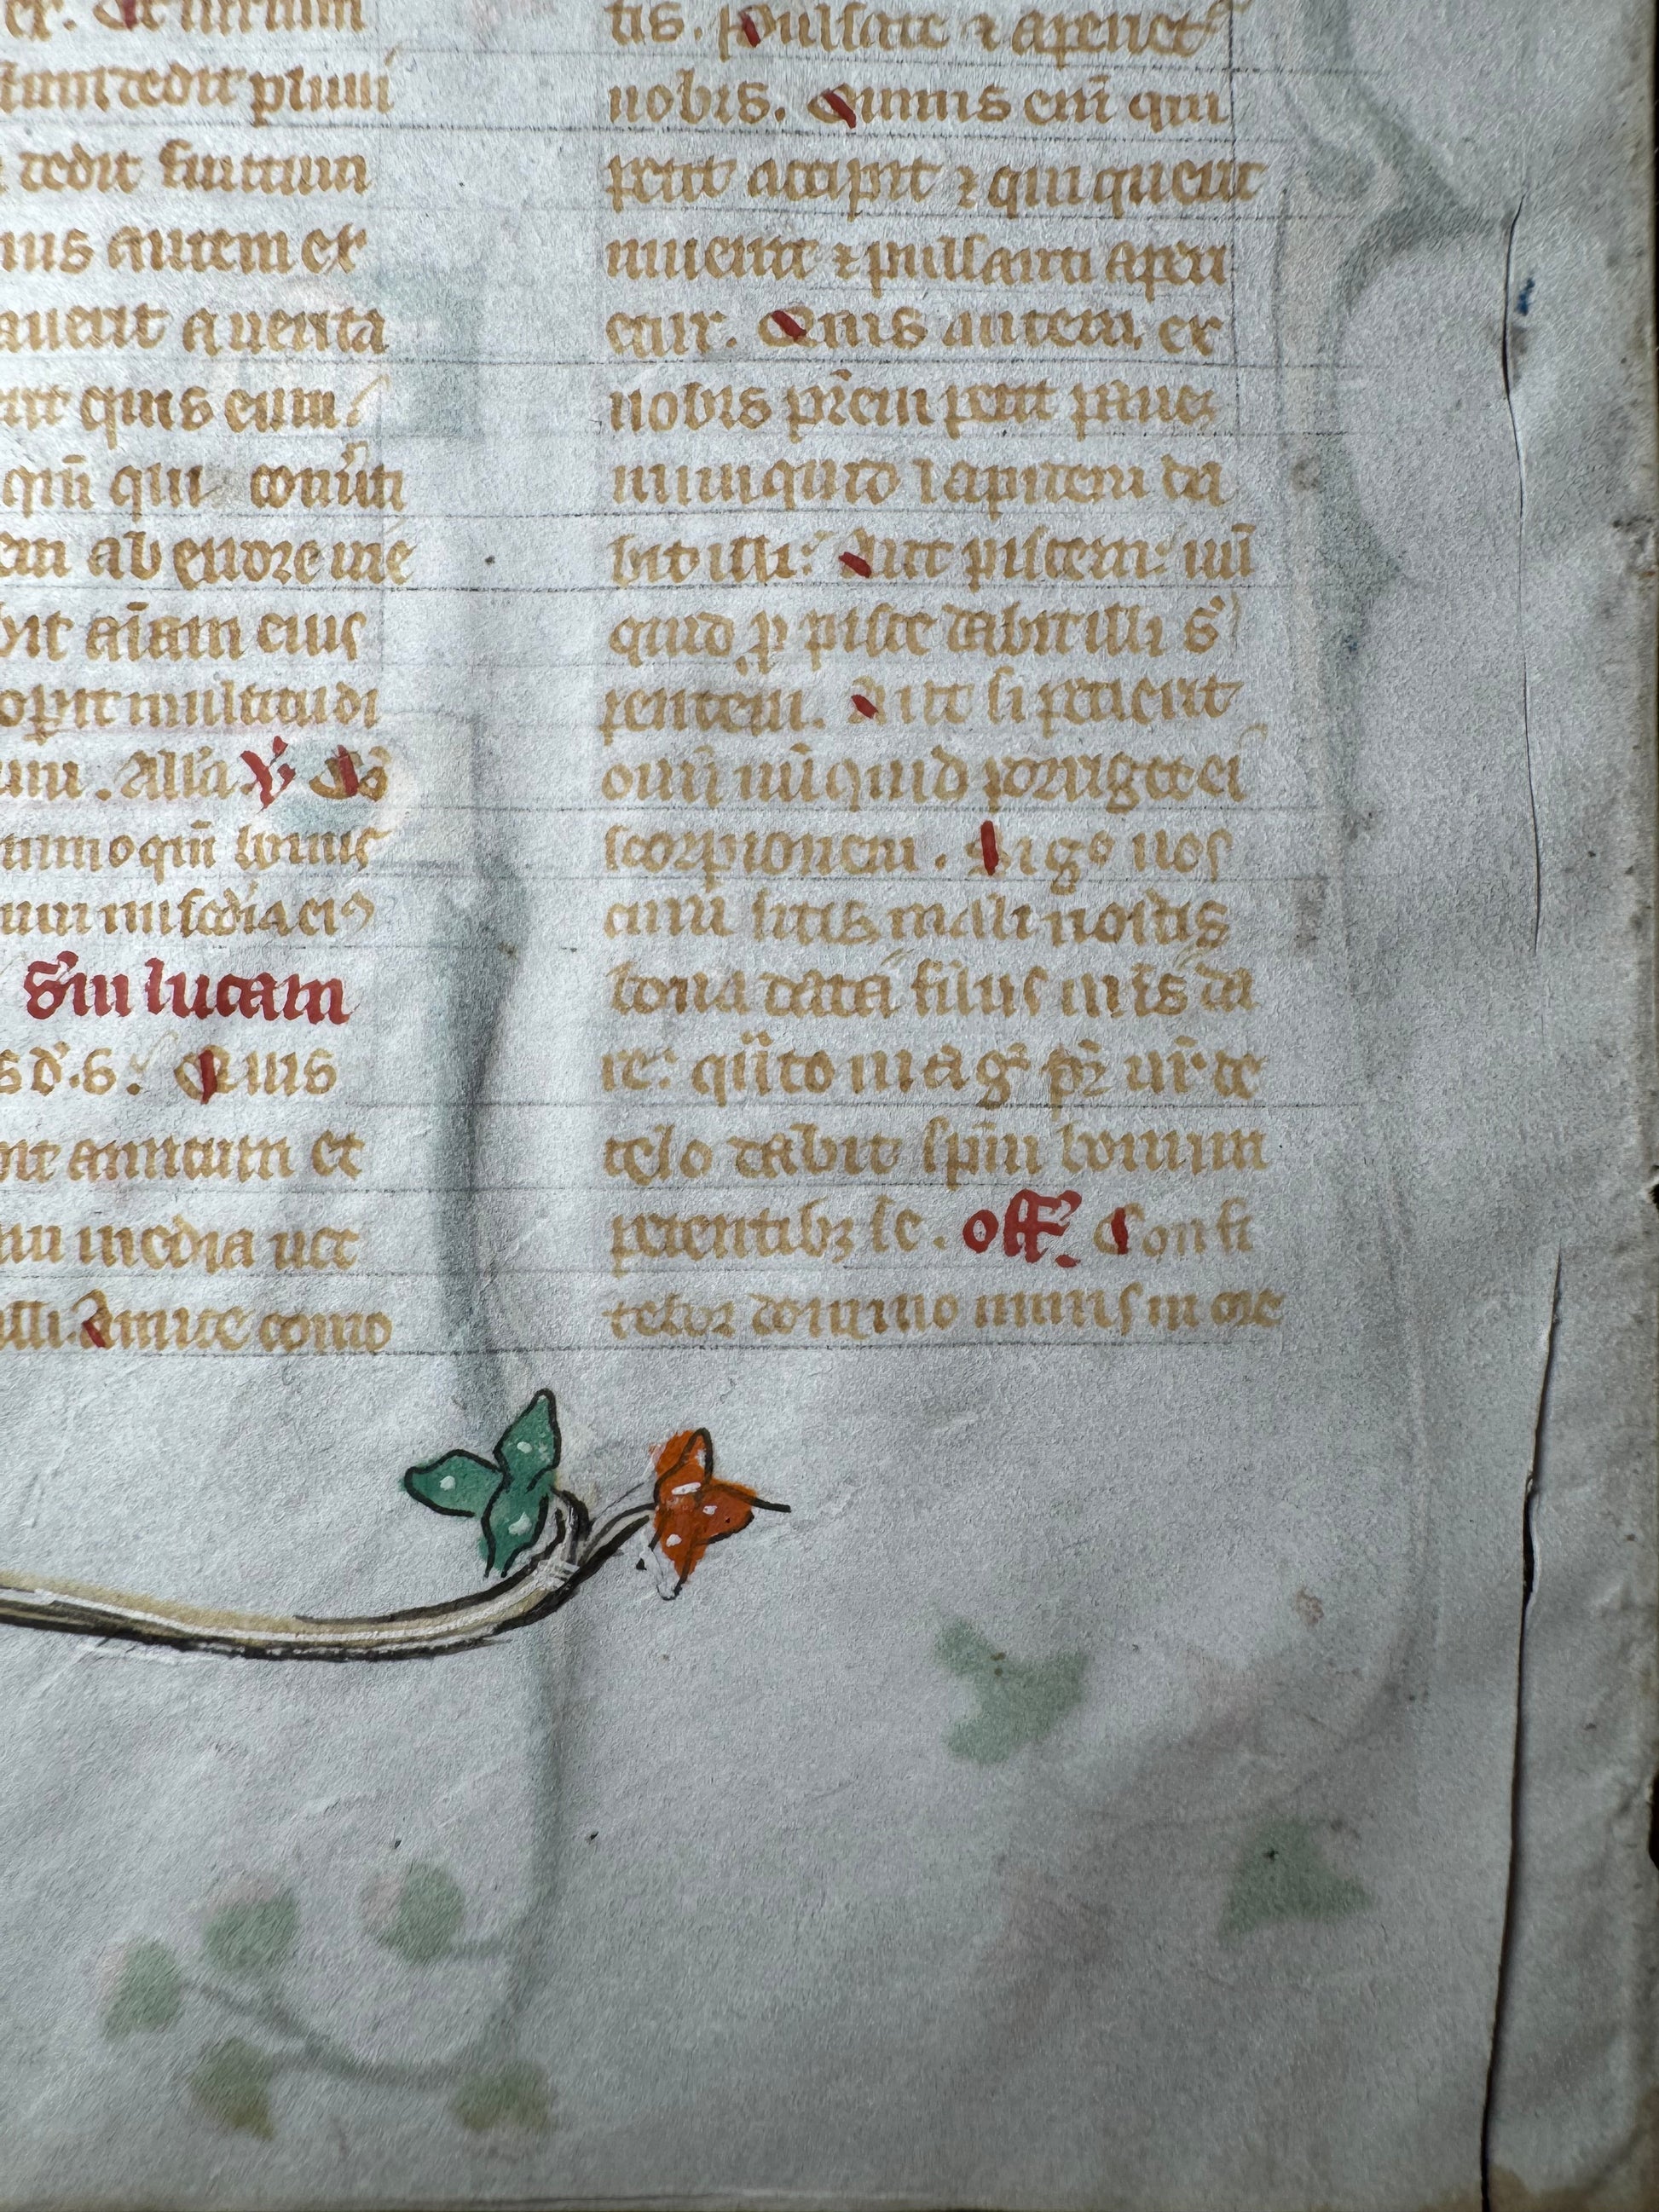 ex. Et iterum
dedit pluui
dedit fructum
autem ex
auerit a uerita
quis eum
qm̄ qui conuti
ab errore uie
aīam eius
opit multitudi
Alla ℣ Co
qm̄ bonus
misc̄dia ei9
S'm lucam
s d. s. Quis
amicum et
media noct
illi Amice como
tis. Pulsate ⁊ aperiet᷑
uobis. Omnis eni᷑ qui
petit accipit ⁊ qui querit
inuenit ⁊ pulsanti aperi
etur. Quis autem ex
uobis pr̄em petit panez
nunquid lapidem da
bit illi: Aut piscem: nū
quid ꝓ pisce dabit illi s̄
pentem. Aut si petierit
ouū nūquid porriget ei
scorpionem. Si ergo uos
cum sitis mali nostis
bona data filiis uris da
re: qn̄to mag᷑ pr̄ ur̄ de
celo dabit sp̄m bonum
petentibꝫ se. off̄. Confi
tebor domino nimis in ore